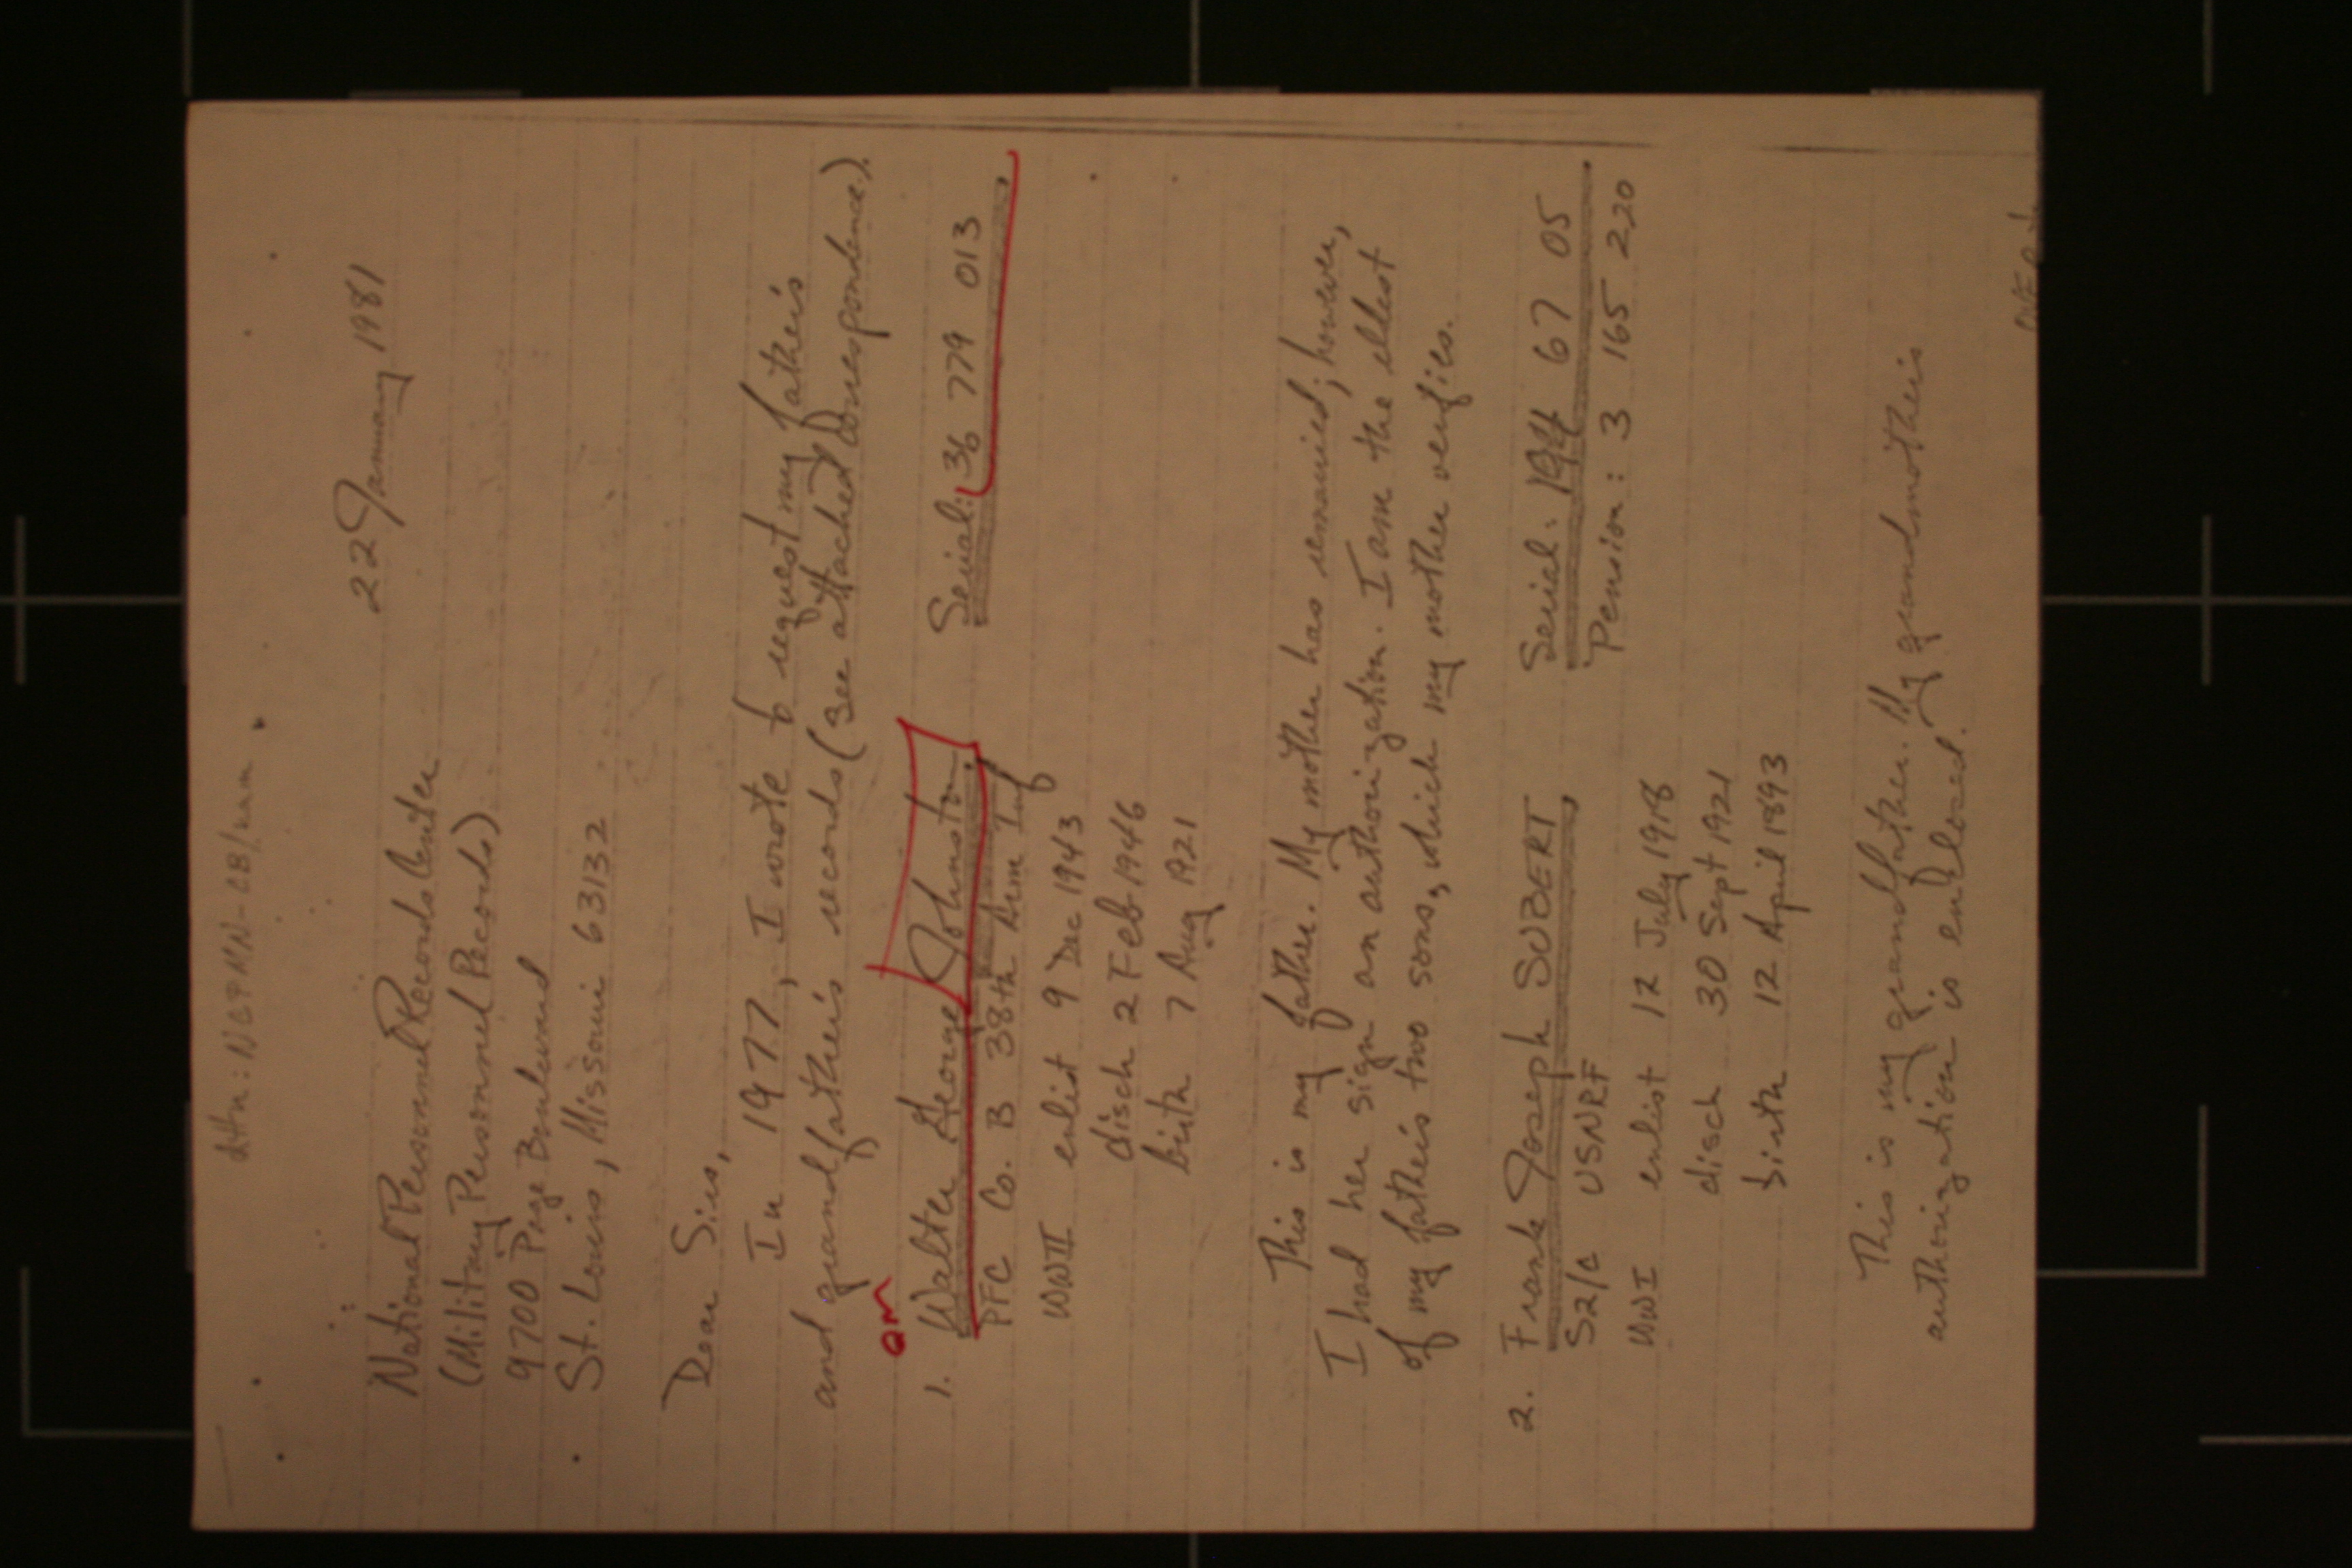 Attn: NCPMN-CB/nam
22 January 1981
National Personnel Records Center
(Military Personnel Records)
9700 Page Boulevard
St. Louis, Missouri 63132
Dear Sirs,
In 1977, I wrote to request my father's
and grandfather's records (see attached correspondence).
1. Walter George Johnston, Serial: 36 779 013
PFC Co. B 38th Arm Inf
WWII enlist 9 Dec 1943
disch 2 Feb 1946
birth 7 Aug 1921
This is my father. My mother has remarried; however,
I had her sign an authorization. I am the eldest
of my father's two sons, which my mother verifies.
2. Frank Joseph SUBERT, Serial: 194 67 05
S2/c USNRF Pension: 3 165 220
WWI enlist 12 July 1918
disch 30 Sept 1921
birth 12 April 1893
This is my grandfather. My grandmother's
authorization is enclosed.